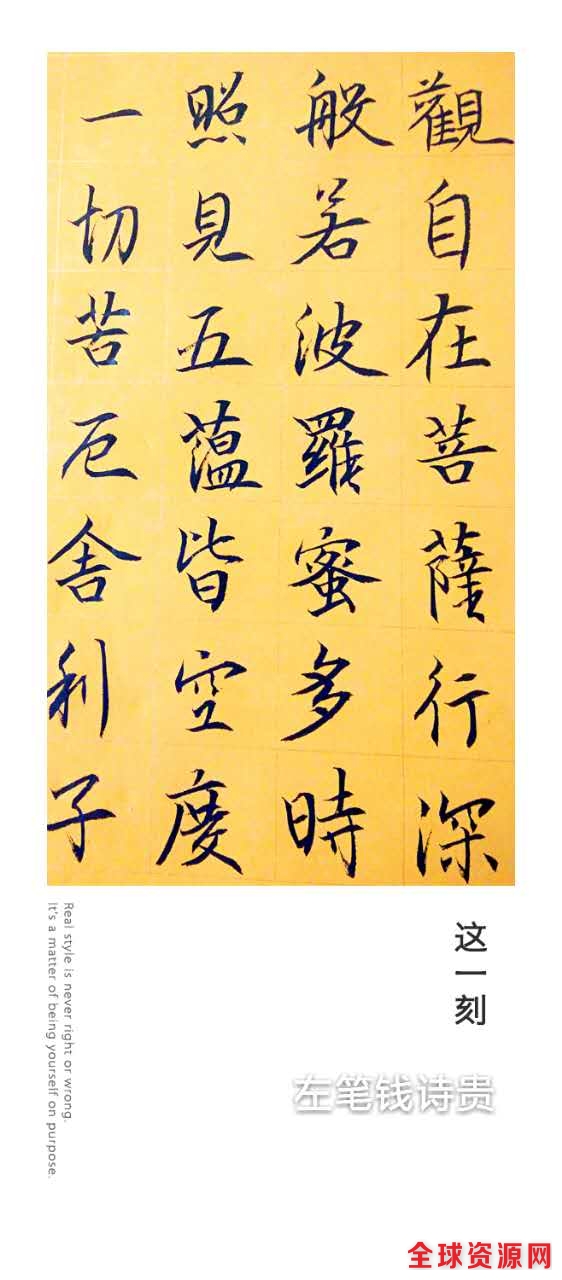 觀自在菩薩行深
般若波羅蜜多時
照見五蕰皆空度
一切苦厄舍利子
这一刻
左笔钱诗贵
Real style is never right or wrong.
It's a matter of being yourself on purpose.
全球资源网